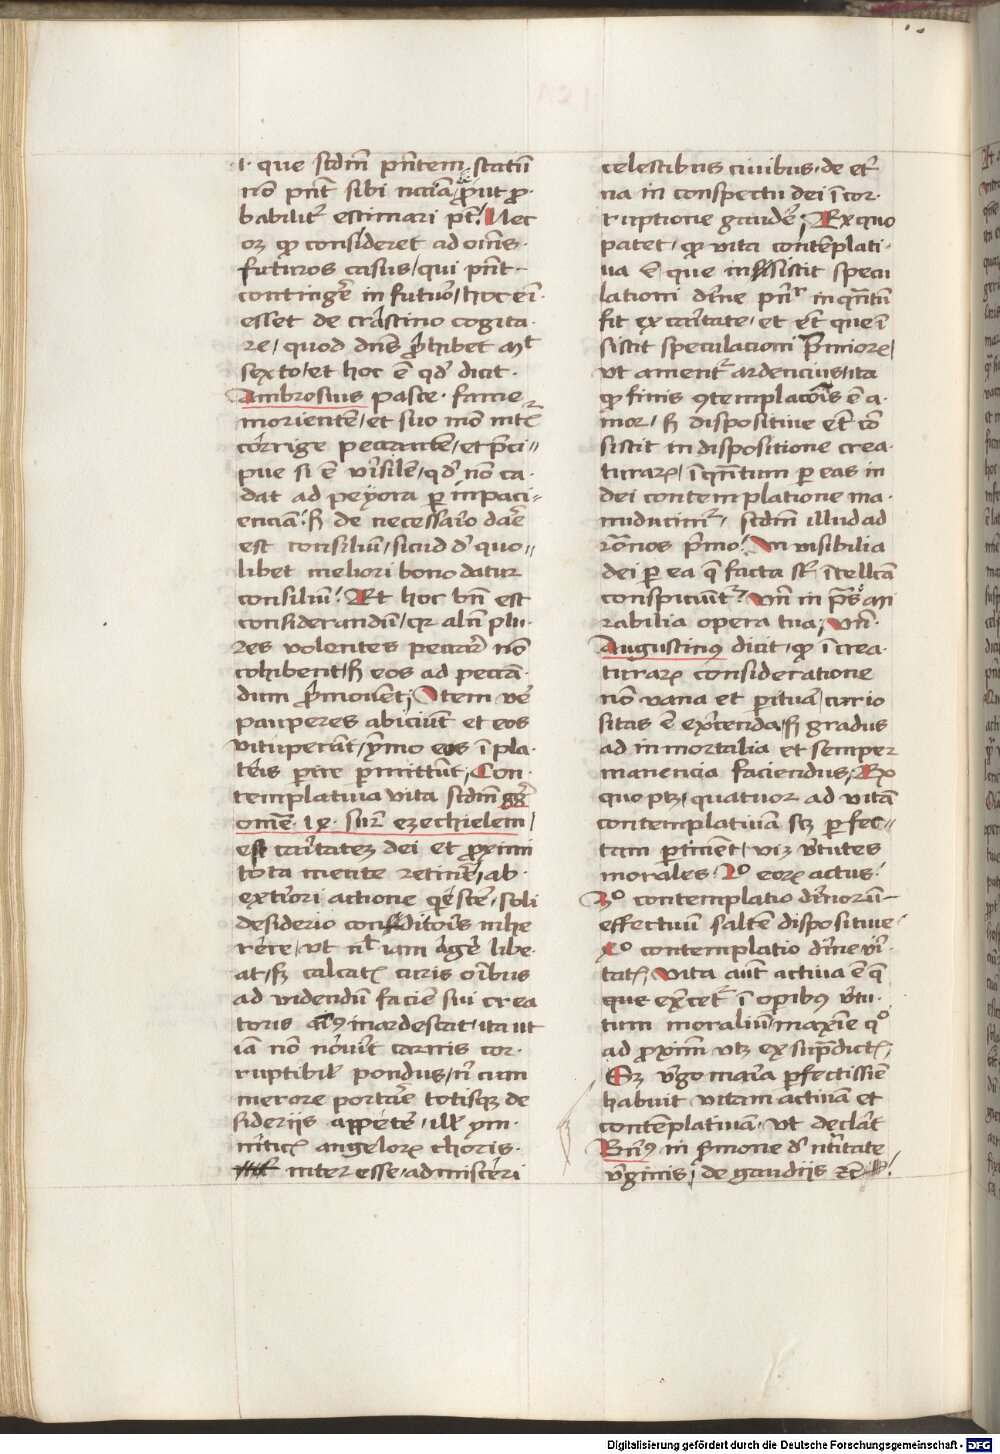 .i. que scdm̄ pn̄tem statū
nō pn̄t sibi nociā prout pro
babiliter estimari pt̄. Nec
oꝫ qͦ consideret ad om̄s
futuros casus, qui pn̄t
contingēr in futuro, hoc em̄
esset de crastino cogita
re, quod dn̄s prohibet mͭ
sexto, et hoc ē qd̄ dicit
Ambrosius pasce fame
morientē, et suo mō
corrige peccantē, et preci
pue si ē verisile, qd̄ nō ca
dat ad peyora per inpaci
enciā. sꝫ de necessario dare
est consiliū, sicud de quo
libet meliori bono datur
consiliū. Et hoc bn̄ est
considerandū, qr aln̄ plu
res volentes peccare nō
cohibent, sꝫ eos ad peccā
dum promovent, Item vere
pauperes abiciunt et eos
vituperant, ymo eos ī pla
teis perire permittunt, Con
templatiua vita scdm̄ gg̅
omē. 14. super ezechielem,
est caritatē dei et proximi
tota mente retinere, ab
exteriori actione quiescere, soli
desiderio conditoris inhe
rere, vt nl̄ iam agere libe
at, sꝫ calcatis curis omībus
ad videndū faciē sui crea
toris animus inardescat, ita ut
iā nō noverit carnis cor
ruptibilis pondus, cum
merore portare totisqꝫ de
siderijs appetere, illis ym
niticis angelorꝫ choris
interesse, admisceri
celestibus ciuibus, de eter
na in conspectu dei ī cor
ruptione gaudere, Ex quo
patet, qͦ vita contemplati
ua ē que insistit specu
lationi diuine in qn̄tū
fit ex caritate, et ecͭ que ī
sistit speculacioni
vt ament ardencius, ita
qͦ finis contemplacōis ē a
mor, sꝫ dispositiue ecͭ cō
sistit in dispositione crea
turarꝫ, ī qn̄tum per eas in
dei contemplatione ma
nuducimur, scdm̄ illud ad
rōanos primo. Inuisibilia
dei per ea q̄ facta st̄ ītellcā
conspiciuntur. Vn̄ in ps̄ mi
rabilia opera tua, vn̄
Augustinus dicit, qͦ ī crea
turarꝫ consideratione
nō vana et peritura curio
sitas ē exercenda, sꝫ gradus
ad inmortalia et semper
manencia faciendus, Ex
quo ptꝫ, quatuor ad vitā
contemplatiuā scꝫ perfec
tam pertinent, vicꝫ virtutes
morales. 2º eorꝫ actus.
3º contemplatio diuinorū
effectuū saltē dispositiue.
4º contemplatio diuine veri
tatis, Vita aut̄ actiua ē q̄
que exercetur ī operibꝫ virtu
tum moraliū, maxīe qͦ
ad proximū vtꝫ ex supradictis,
Eꝫ virgo maria perfectissime
habuit vitam actiuā et
contemplatiuā, vt declarat
Bern̄9 in sermone de natiuitate
virginis, de gaudijs
Digitalisierung gefördert durch die Deutsche Forschungsgemeinschaft - DFG